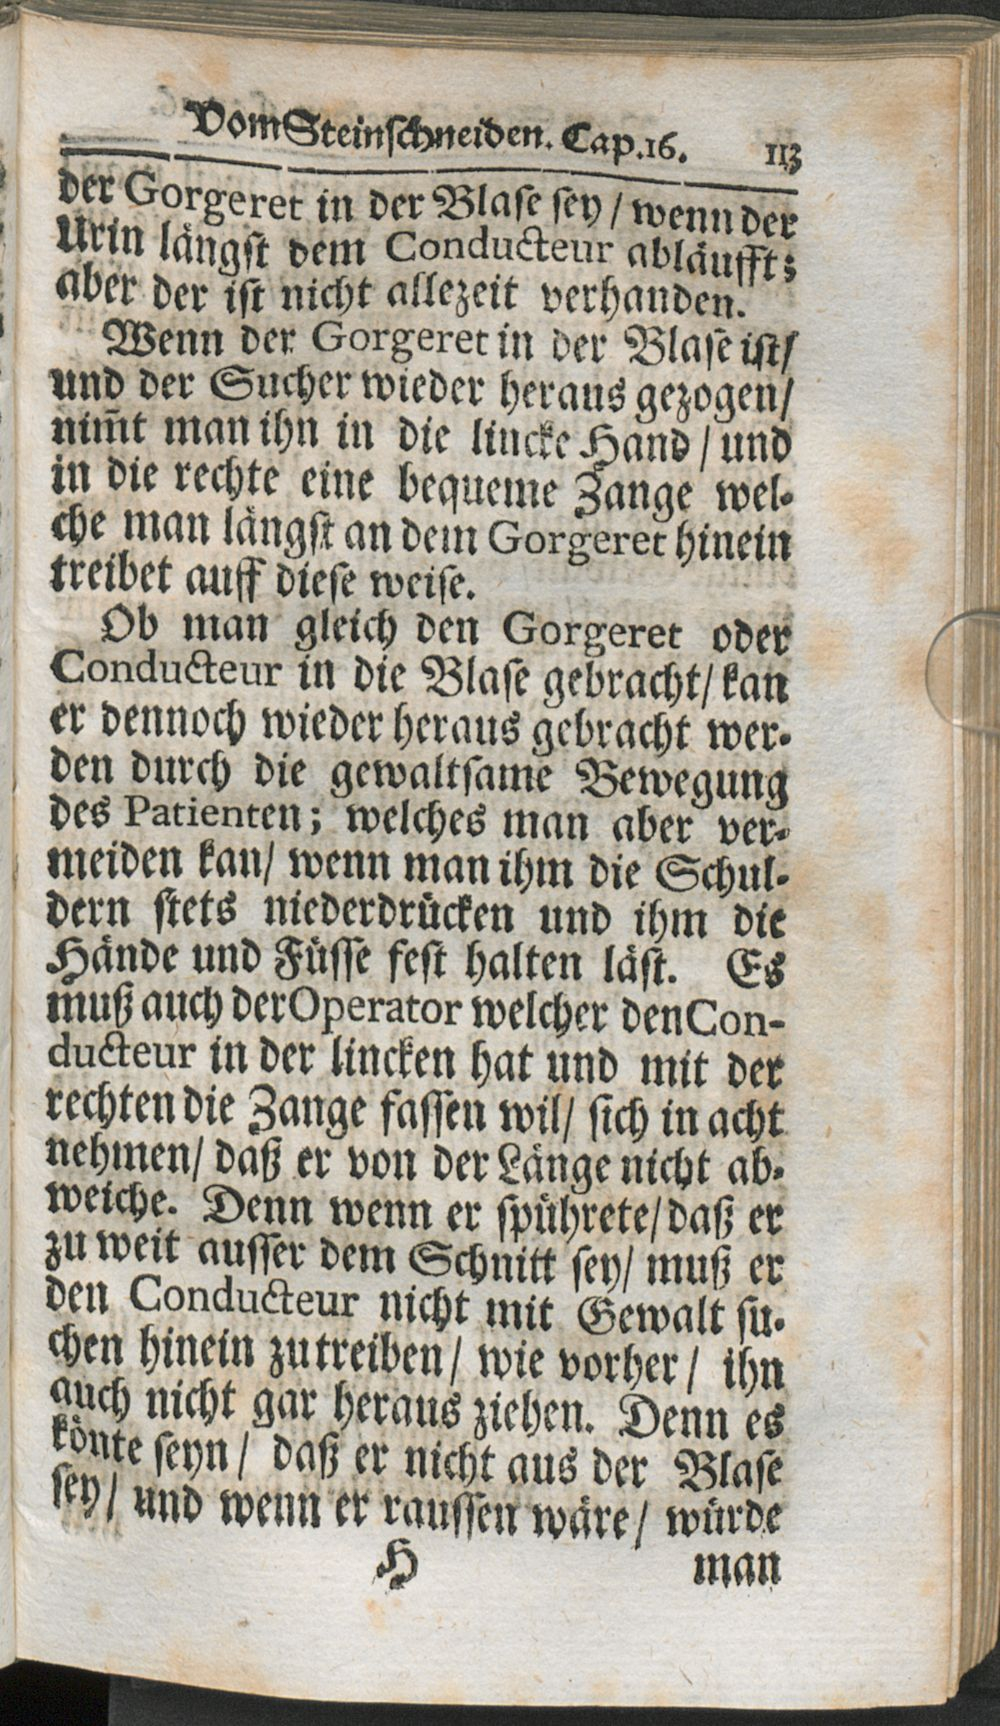 Vom Steinschneiden. Cap. 16. 113
der Gorgeret in der Blase sey / wenn der
Urin längst dem Conducteur abläufft;
aber der ist nicht allezeit verhanden.
Wenn der Gorgeret in der Blase ist/
und der Sucher wieder heraus gezogen/
nim̄t man ihn in die lincke Hand / und
in die rechte eine bequeme Zange wel-
che man längst an dem Gorgeret hinein
treibet auff diese weise.
Ob man gleich den Gorgeret oder
Conducteur in die Blase gebracht/ kan
er dennoch wieder heraus gebracht wer-
den durch die gewaltsame Bewegung
des Patienten; welches man aber ver-
meiden kan/ wenn man ihm die Schul-
dern stets niederdrücken und ihm die
Hände und Füsse fest halten läst. Es
muß auch der Operator welcher den Con-
ducteur in der lincken hat und mit der
rechten die Zange fassen wil/ sich in acht
nehmen/ daß er von der Länge nicht ab-
weiche. Denn wenn er spührete/ daß er
zu weit ausser dem Schnitt sey/ muß er
den Conducteur nicht mit Gewalt su-
chen hinein zutreiben/ wie vorher / ihn
auch nicht gar heraus ziehen. Denn es
könte seyn / daß er nicht aus der Blase
sey/ und wenn er raussen wäre/ würde
H man